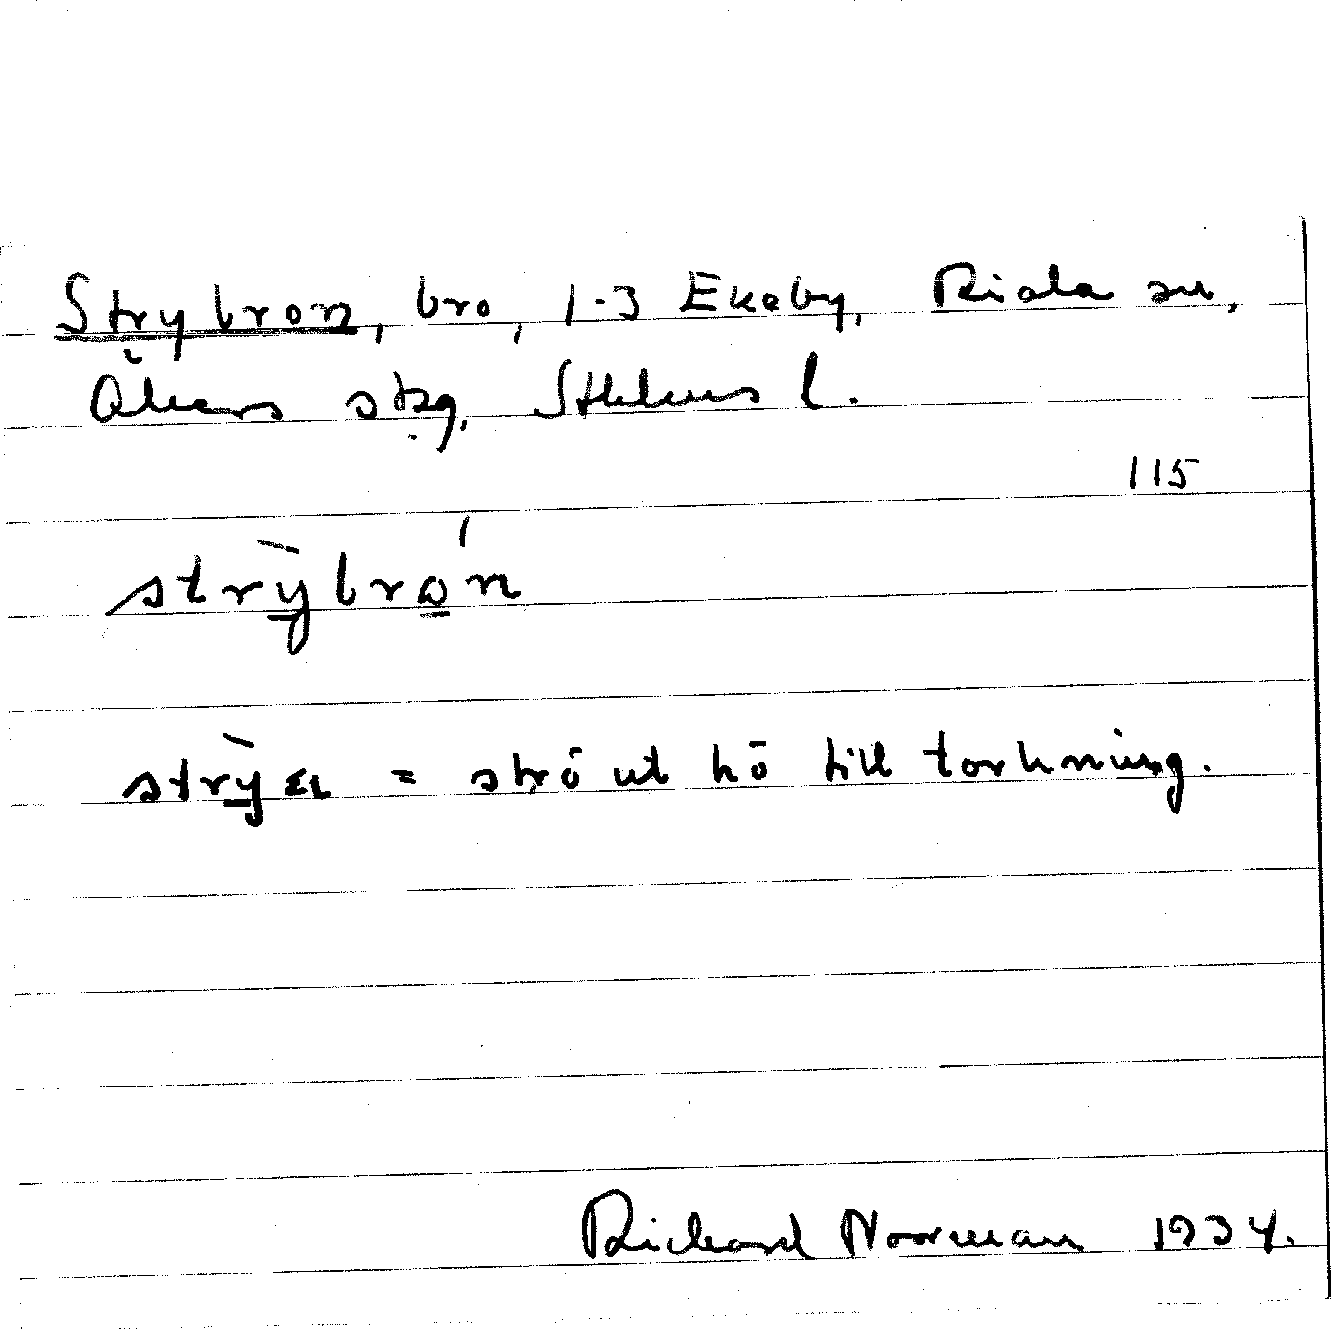 Strybron, bro, 1-3 Ekeby, Riala sn,
Åkers skg, Sthlms l.
115
strỳbrǫ́n
strỳa = strö ut hö till torkning.
Rickard Norrman 1934.